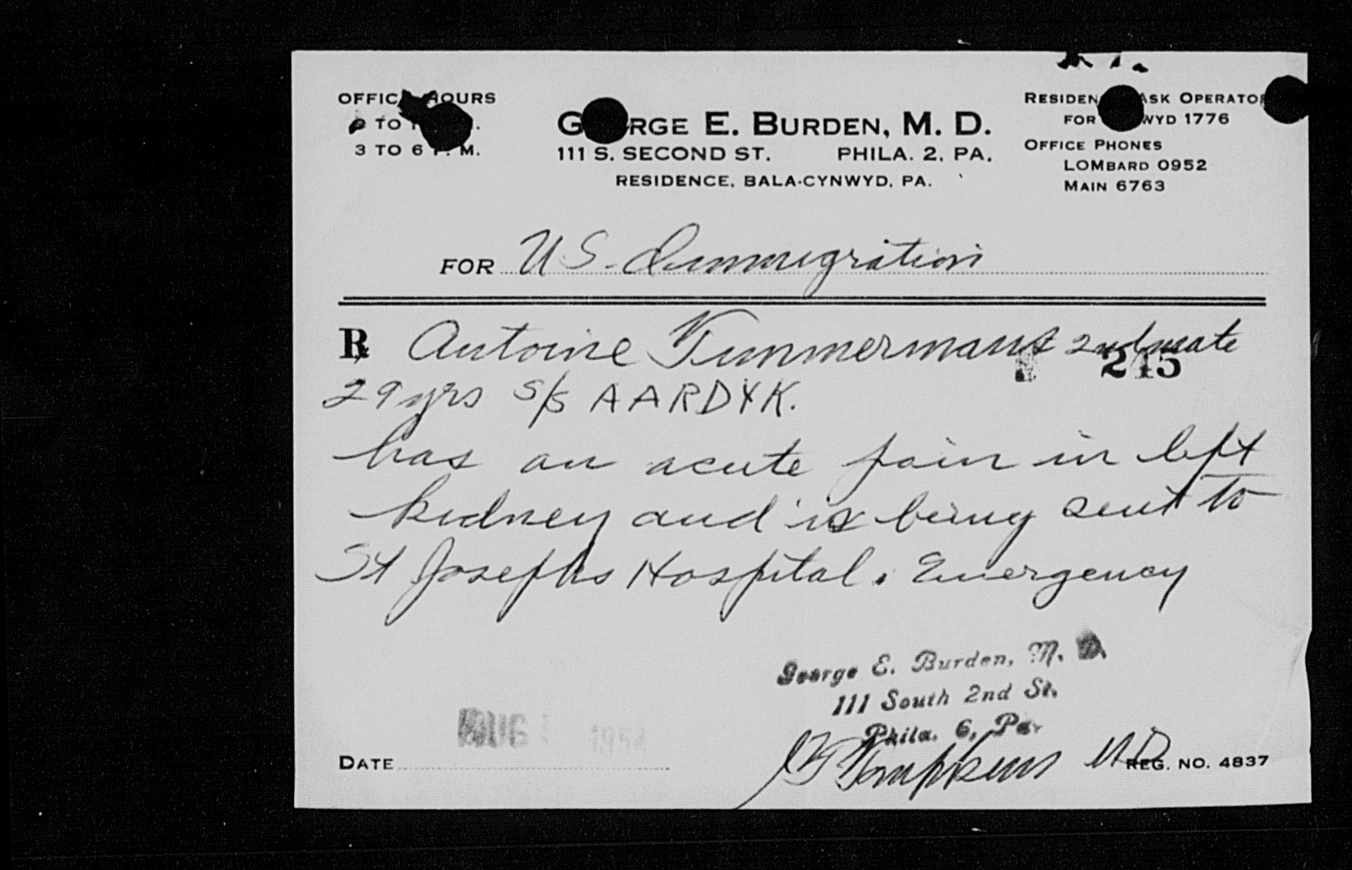 OFFICE HOURS
TO
3 TO 6 P. M.
GEORGE E. BURDEN, M. D.
111 S. SECOND ST. PHILA. 2, PA.
RESIDENCE, BALA-CYNWYD, PA.
ASK OPERATOR
FOR 1776
OFFICE PHONES
LOMBARD 0952
MAIN 6763
FOR US. Immigration
R Antoine Timmermans 2nd mate
245
29 yrs S/S AARDYK.
has an acute pain in left
kidney and is being sent to
St Josephs Hospital. Emergency
George E. Burden, M. D.
111 South 2nd St.
Phila. 6, Pa.
AUG 1954
DATE
Tompkins MD
REG. NO. 4837